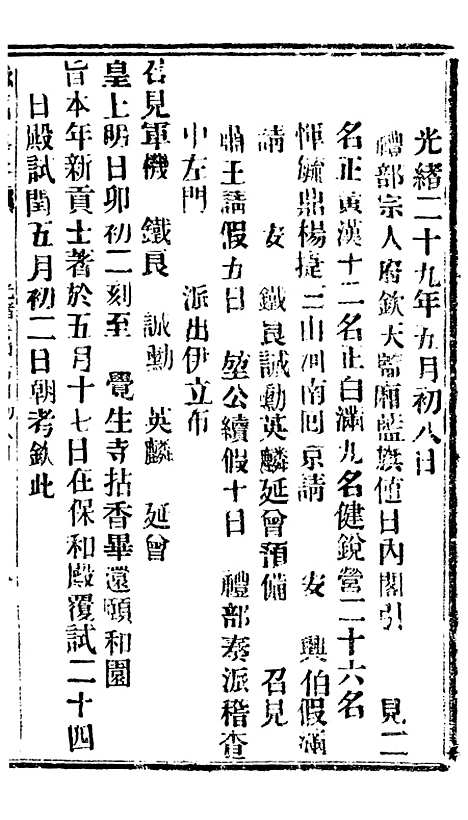 光緒二十九年五月初八日
禮部宗人府欽天監廂藍旗値日內閣引　見二
名正黃漢十二名正白滿九名健銳營二十六名
惲毓鼎楊捷三山河南囘京請　安　興伯假滿
請　安　鐵良誠勳英麟延曾預備　召見
肅王請假五日　堃公續假十日　禮部奏派稽查
中左門　派出伊立布
召見軍機　鐵良　誠勳　英麟　延曾
皇上明日卯初二刻至　覺生寺拈香畢還頤和園
旨本年新貢士著於五月十七日在保和殿覆試二十四
日殿試閏五月初二日朝考欽此